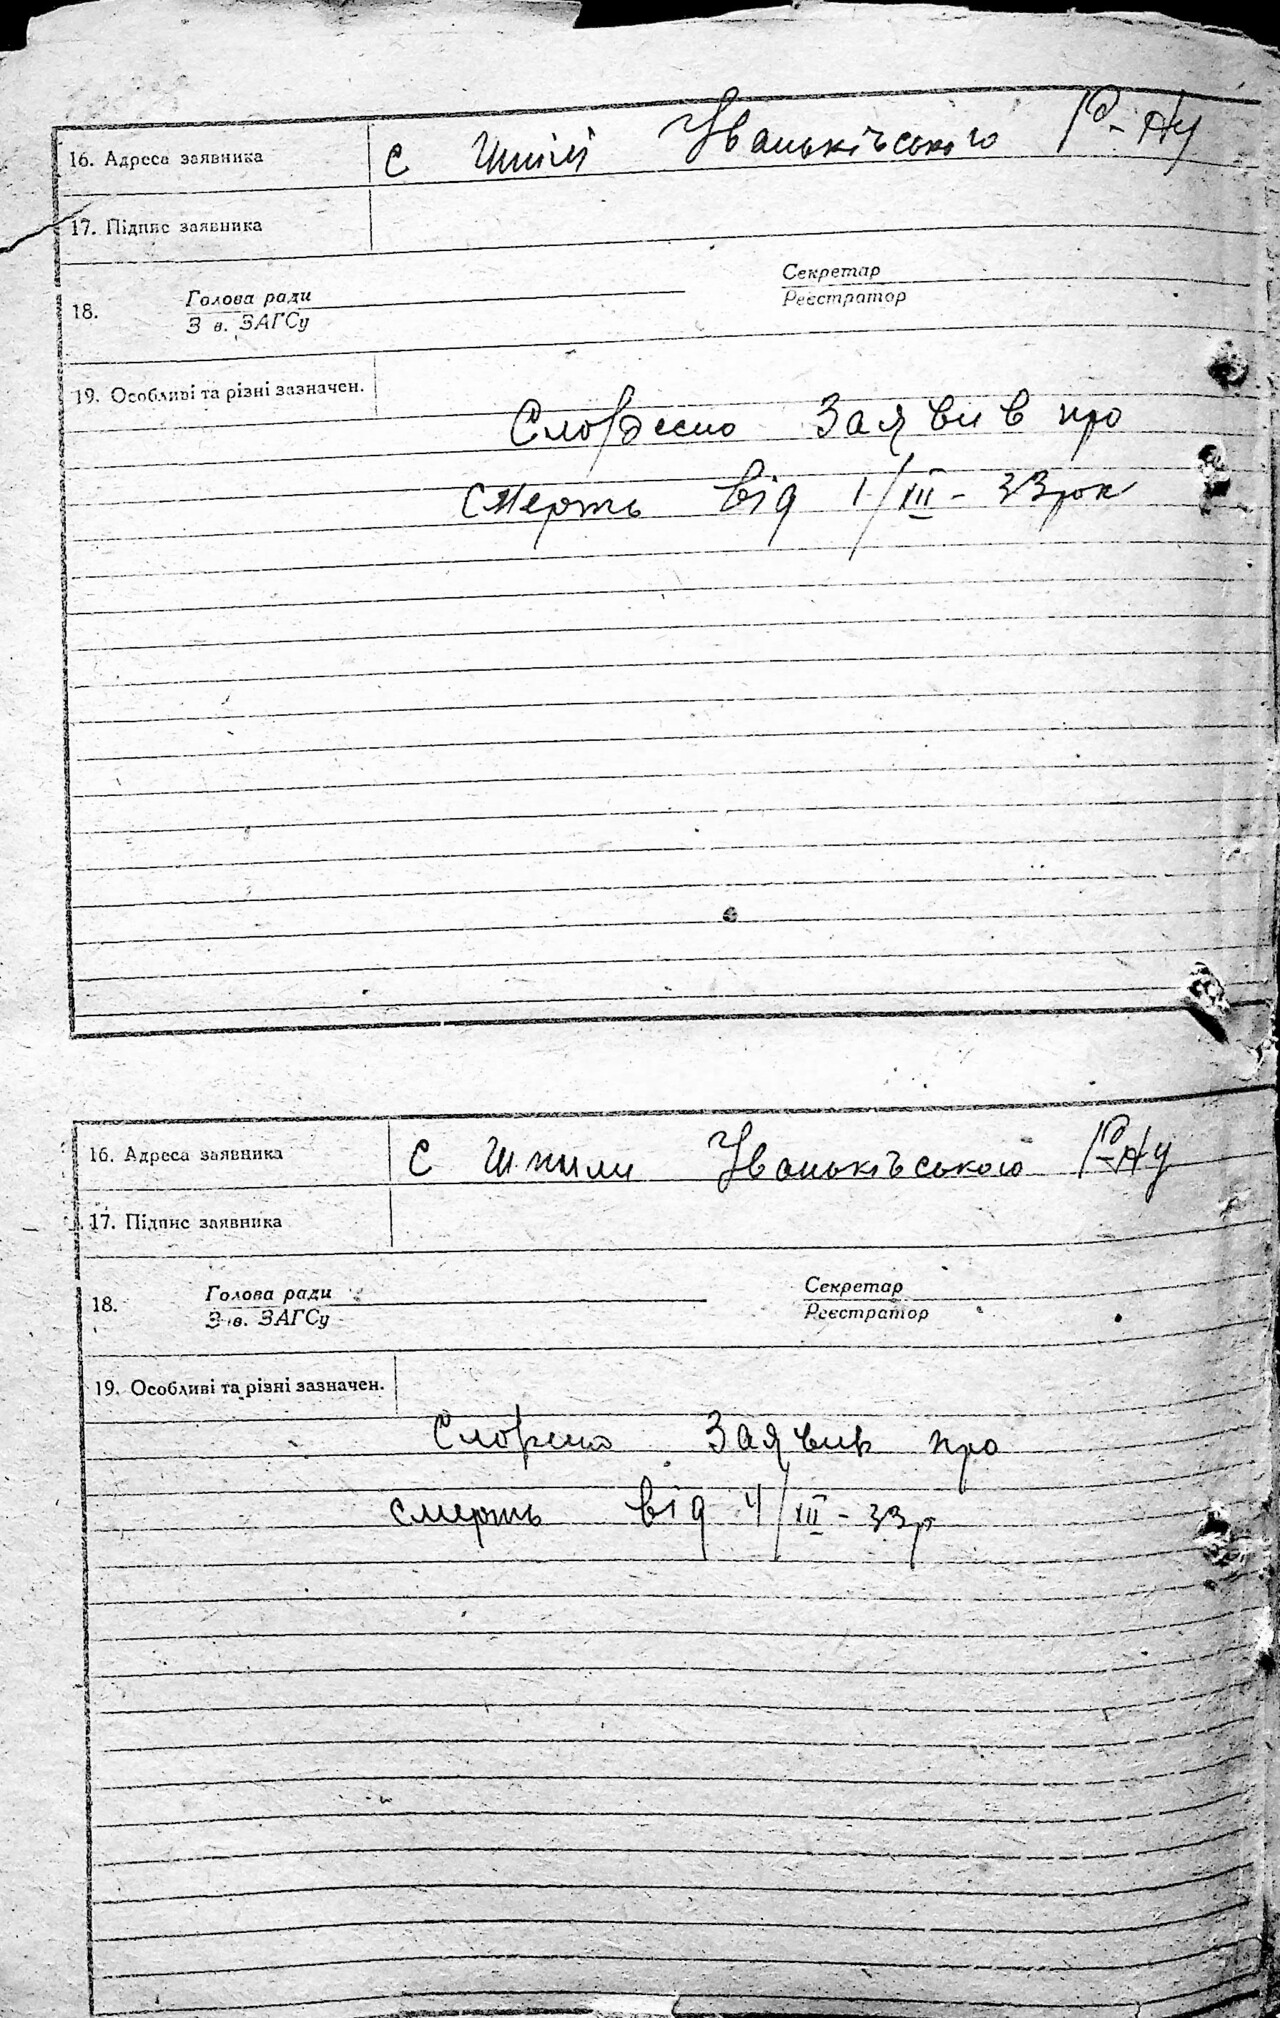 16. Адреса заявника с Шпилі Іваньківського Р-ну
17. Підпис заявника
Секретар
Голова ради
18.
Реєстратор
З в. ЗАГСу
19. Особливі та різні зазначен.
Словесно Заявив про
смерть від 1/XII - 33 рок
16. Адреса заявника с Шпили Іваньківського Р-ну
17. Підпис заявника
Секретар
Голова ради
18.
Реєстратор
З в. ЗАГСу
19. Особливі та різні зазначен.
Заявив про
смерть від 4/XII - 33 р